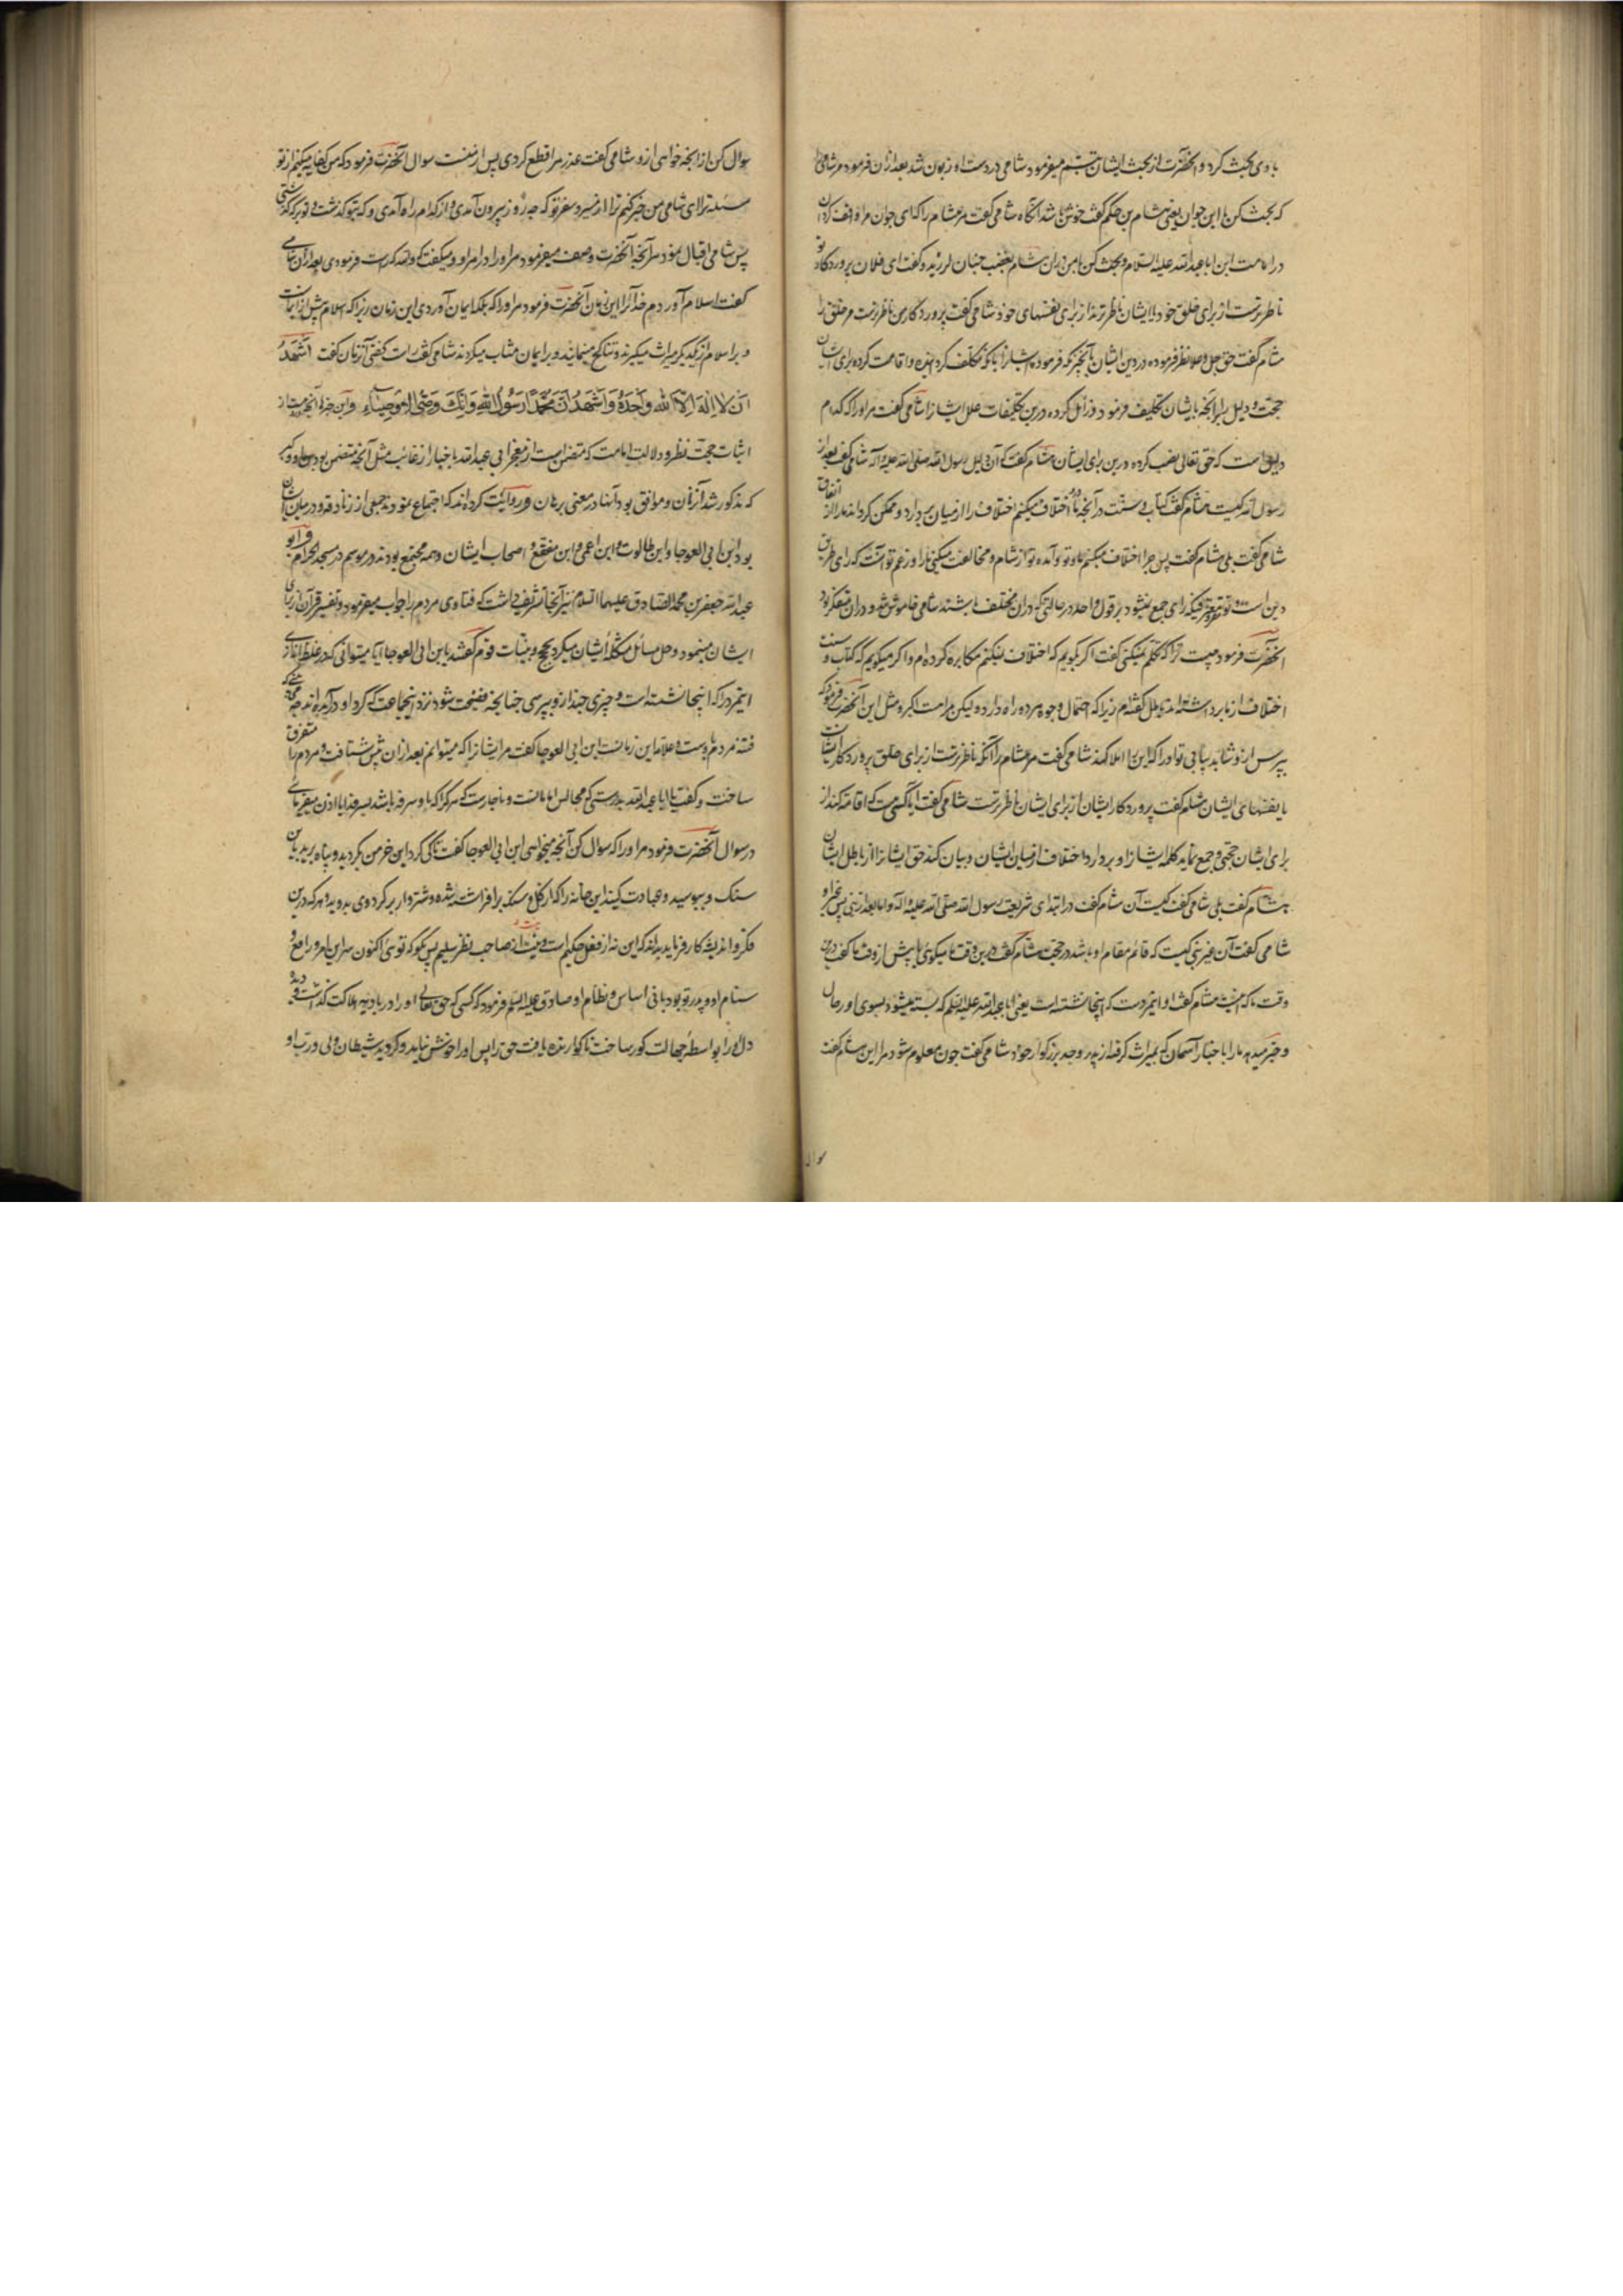 با وی بحث کرد و آنحضرت از بحث ایشان تبسم میفرمود شامی در دست او زبون شد بعد از آن فرمود مر شامی را
که بحث کن با این جوان یعنی هشام بن حکم گفت خوش باشد آنگاه شامی گفت مر هشام را که ای جوان مرا واقف کردان
در امامت این ابا عبد الله علیه السلام و بحث کن با من در آن هشام بغضب چنان لرزید و گفت ای فلان پروردگار تو
ناظرترست از برای خلق خود یا ایشان ناظرترند از برای نفسهای خود شامی گفت پروردگار من ناظرترست مر خلق را
هشام گفت حق جل و علا نظر فرموده در دین ایشان بآنچیز که فرمود شامی که مکلف کرد و اقامت کرده برای ایشان
حجت و دلیل برآنچه بایشان تکلیف فرمود و زایل کرده درین تکلیفات علل ایشانرا شامی گفت مر او را که کدام
دلیل است که حق تعالی نصب کرده درین برای ایشان هشام گفت که آن دلیل رسول الله صلی الله علیه و آله شامی گفت بعد از
رسول الله کیست هشام گفت کتاب و سنت در آنچه ما اختلاف میکنیم اختلاف را از میان بردارد و ممکن کرداند ما را از اتفاق
شامی گفت بلی هشام گفت پس چرا اختلاف میکنیم ما و تو و آمده تو از شام و مخالفت میکنی ما را و زعم تو آنست که رای طریق
دین است و تو معترفی که رای جمع نمیشود بر قول واحد در حالتی که در آن مختلف باشند شامی خاموش شد و در آن متفکر بود
آنحضرت فرمود چیست ترا که تکلم نمیکنی گفت اگر بگویم که اختلاف نمیکنیم مکابره کرده ام و اگر میگویم که کتاب و سنت
اختلاف از ما برداشته اند باطل گفته ام زیرا که احتمال وجوه مر دو راه دارد ولیکن مراست اکر و مثل این آنحضرت فرمود که
بپرس از او شاید بیابی تو او را که این را املا کند شامی گفت مر هشام را آنکه ناظرترست از برای خلق پروردگار ایشانست
یا نفسهای ایشان هشام گفت پروردگار ایشان از برای ایشان ناظرترست شامی گفت آیا کسی هست که اقامه کند از
برای ایشان حجتی و جمع نماید کلمه ایشانرا و بردارد اختلاف از میان ایشان و بیان کند حق ایشانرا از باطل ایشان
هشام گفت بلی شامی گفت کیست آن هشام گفت در ابتدای شریعت رسول الله صلی الله علیه و آله و اما بعد از نبی پس غیر او
شامی گفت آن غیر نبی کیست که قائم مقام او باشد در حجت هشام گفت درین وقت ما میگوئی یا پیش از وقت ما گفت درین
وقت ما که هست هشام گفت او اینمردست که اینجا نشسته است یعنی ابا عبد الله علیه السلام که بسته میشود بسوی او رحال
و خبر میدهد ما را باخبار آسمان که بمیراث گرفته از پدر و جد بزرگوار خود شامی گفت چون معلوم شود مرا این هشام گفت
سوال
سوال کن از آنچه خواهی ازو شامی گفت عذر مرا قطع کردی پس از منست سوال آنحضرت فرمود که من کفایه میکنم از تو
مسئله ترا ای شامی من خبر کنم ترا از مسیر و سفر تو که چه روز بیرون آمدی و از کدام راه آمدی و که بتو کذشت و تو بر که کذشتی
پس شامی اقبال نمود بر آنچه آنحضرت وصف میفرمود مر او را در امر او و میگفت که والله که راست فرمودی بعد از آن شامی
گفت اسلام آوردم خدا را این زمان آنحضرت فرمود مر او را که بلکه ایمان آوردی این زمان زیرا که اسلام پیش از ایمانست
و بر اسلام از یکدیگر میراث میگیرند و تناکح مینمایند و بر ایمان مثاب میکردند شامی گفت راست گفتی آنزمان گفت اَشْهَدُ
اَنْ لا اِلهَ اِلَّا الله وَحْدَهُ وَاَشْهَدُ اَنَّ مُحَمَّدًا رَسُولُ اللهِ وَاَنَّكَ وَصِيُّ الاَوْصِيَاءِ و این خبر آنچه هست از
اثبات حجت نظر و دلالت امامت که متضمن است از معجز ابی عبد الله باخبار از غایب مثل آنچه متضمن بود
که مذکور شد از آن و موافق بود آنها در معنی برهان و روایت کرده اند که اجتماع نمودند جمعی از زنادقه و در میان ایشان
بود ابن ابی العوجا و ابن طالوت و ابن اعمی و ابن مقفع و اصحاب ایشان و همه مجتمع بودند در موسم در مسجد الحرام و ابو
عبد الله جعفر بن محمد الصادق علیهما السلام نیز آنجا تشریف داشت که فتاوی مردم را جواب میفرمود و تفسیر قرآن از برای
ایشان مینمود و حل مسائل مشکله ایشان میکرد بحجج و بینات قوم گفتند باین ابی العوجا آیا میتوانی که در غلط اندازی
اینمرد را که اینجا نشسته است و چیزی چند ازو بپرسی چنانچه فضیحت شود نزد اینجماعت که گرد او درآمده اند
فتنه مردم باوست و علامه این زمانست ابن ابی العوجا گفت مر ایشانرا که میتوانم بعد از آن پیش شتافت و مردم را متفرق
ساخت و گفت یا ابا عبد الله بدرستی که مجالس امانانست و ناچارست که هر کرا که باو سرفه باشد بسرفد آیا اذن میفرمائی
در سوال آنحضرت فرمود مر او را که سوال کن آنچه میخواهی ابن ابی العوجا گفت تا کی گرد این خرمن بگردید و پناه برید باین
سنک و ببوسید و عبادت کنید این خانه را که از کل و سنک برافراشته شده و شتروار بر گرد وی بدوید و هر که درین
فکر و اندیشه کار فرماید بداند که این نه از فعل حکیم است و نیست از صاحب نظر سلیم پس بگو که توئی اکنون سر این امر و رافع و
سنام او و پدر تو بود بانی اساس و نظام او صادق علیه السلام فرمود که کسی که حق تعالی او را در بادیه هلاکت گذاشت و دیده
دل او را بواسطه جهالت کور ساخت ناگوارنده یافت حق را پس او را خوش نیاید و گردید شیطان ولی و رب او